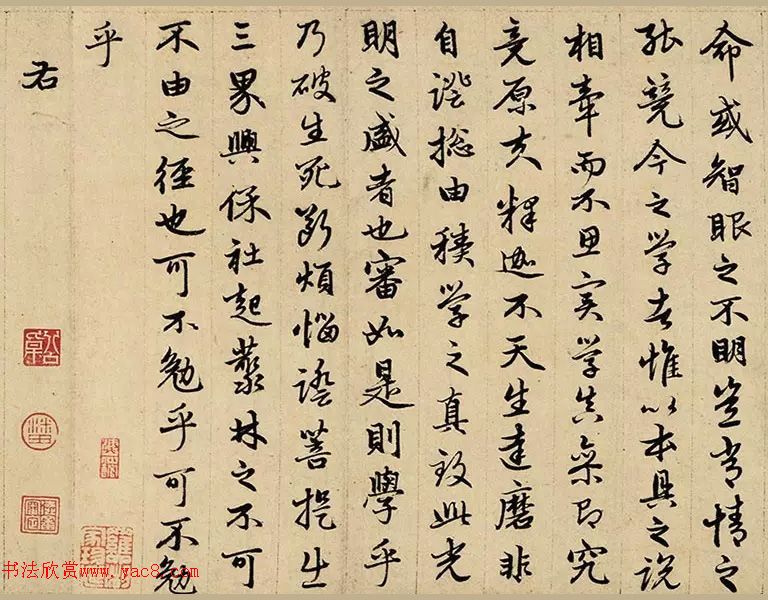 命或智眼之不明豈情之
張競今之学者惟以本具之说
相牽而不思实学真叅即究
竟原夫释迦不天生達磨非
自證捴由積学之真致此光
明之盛者也審如是則學乎
乃破生死断煩惱證菩提出
三界興保社起叢林之不可
不由之徑也可不勉乎可不勉
乎
右
书法欣赏www.yac8.com